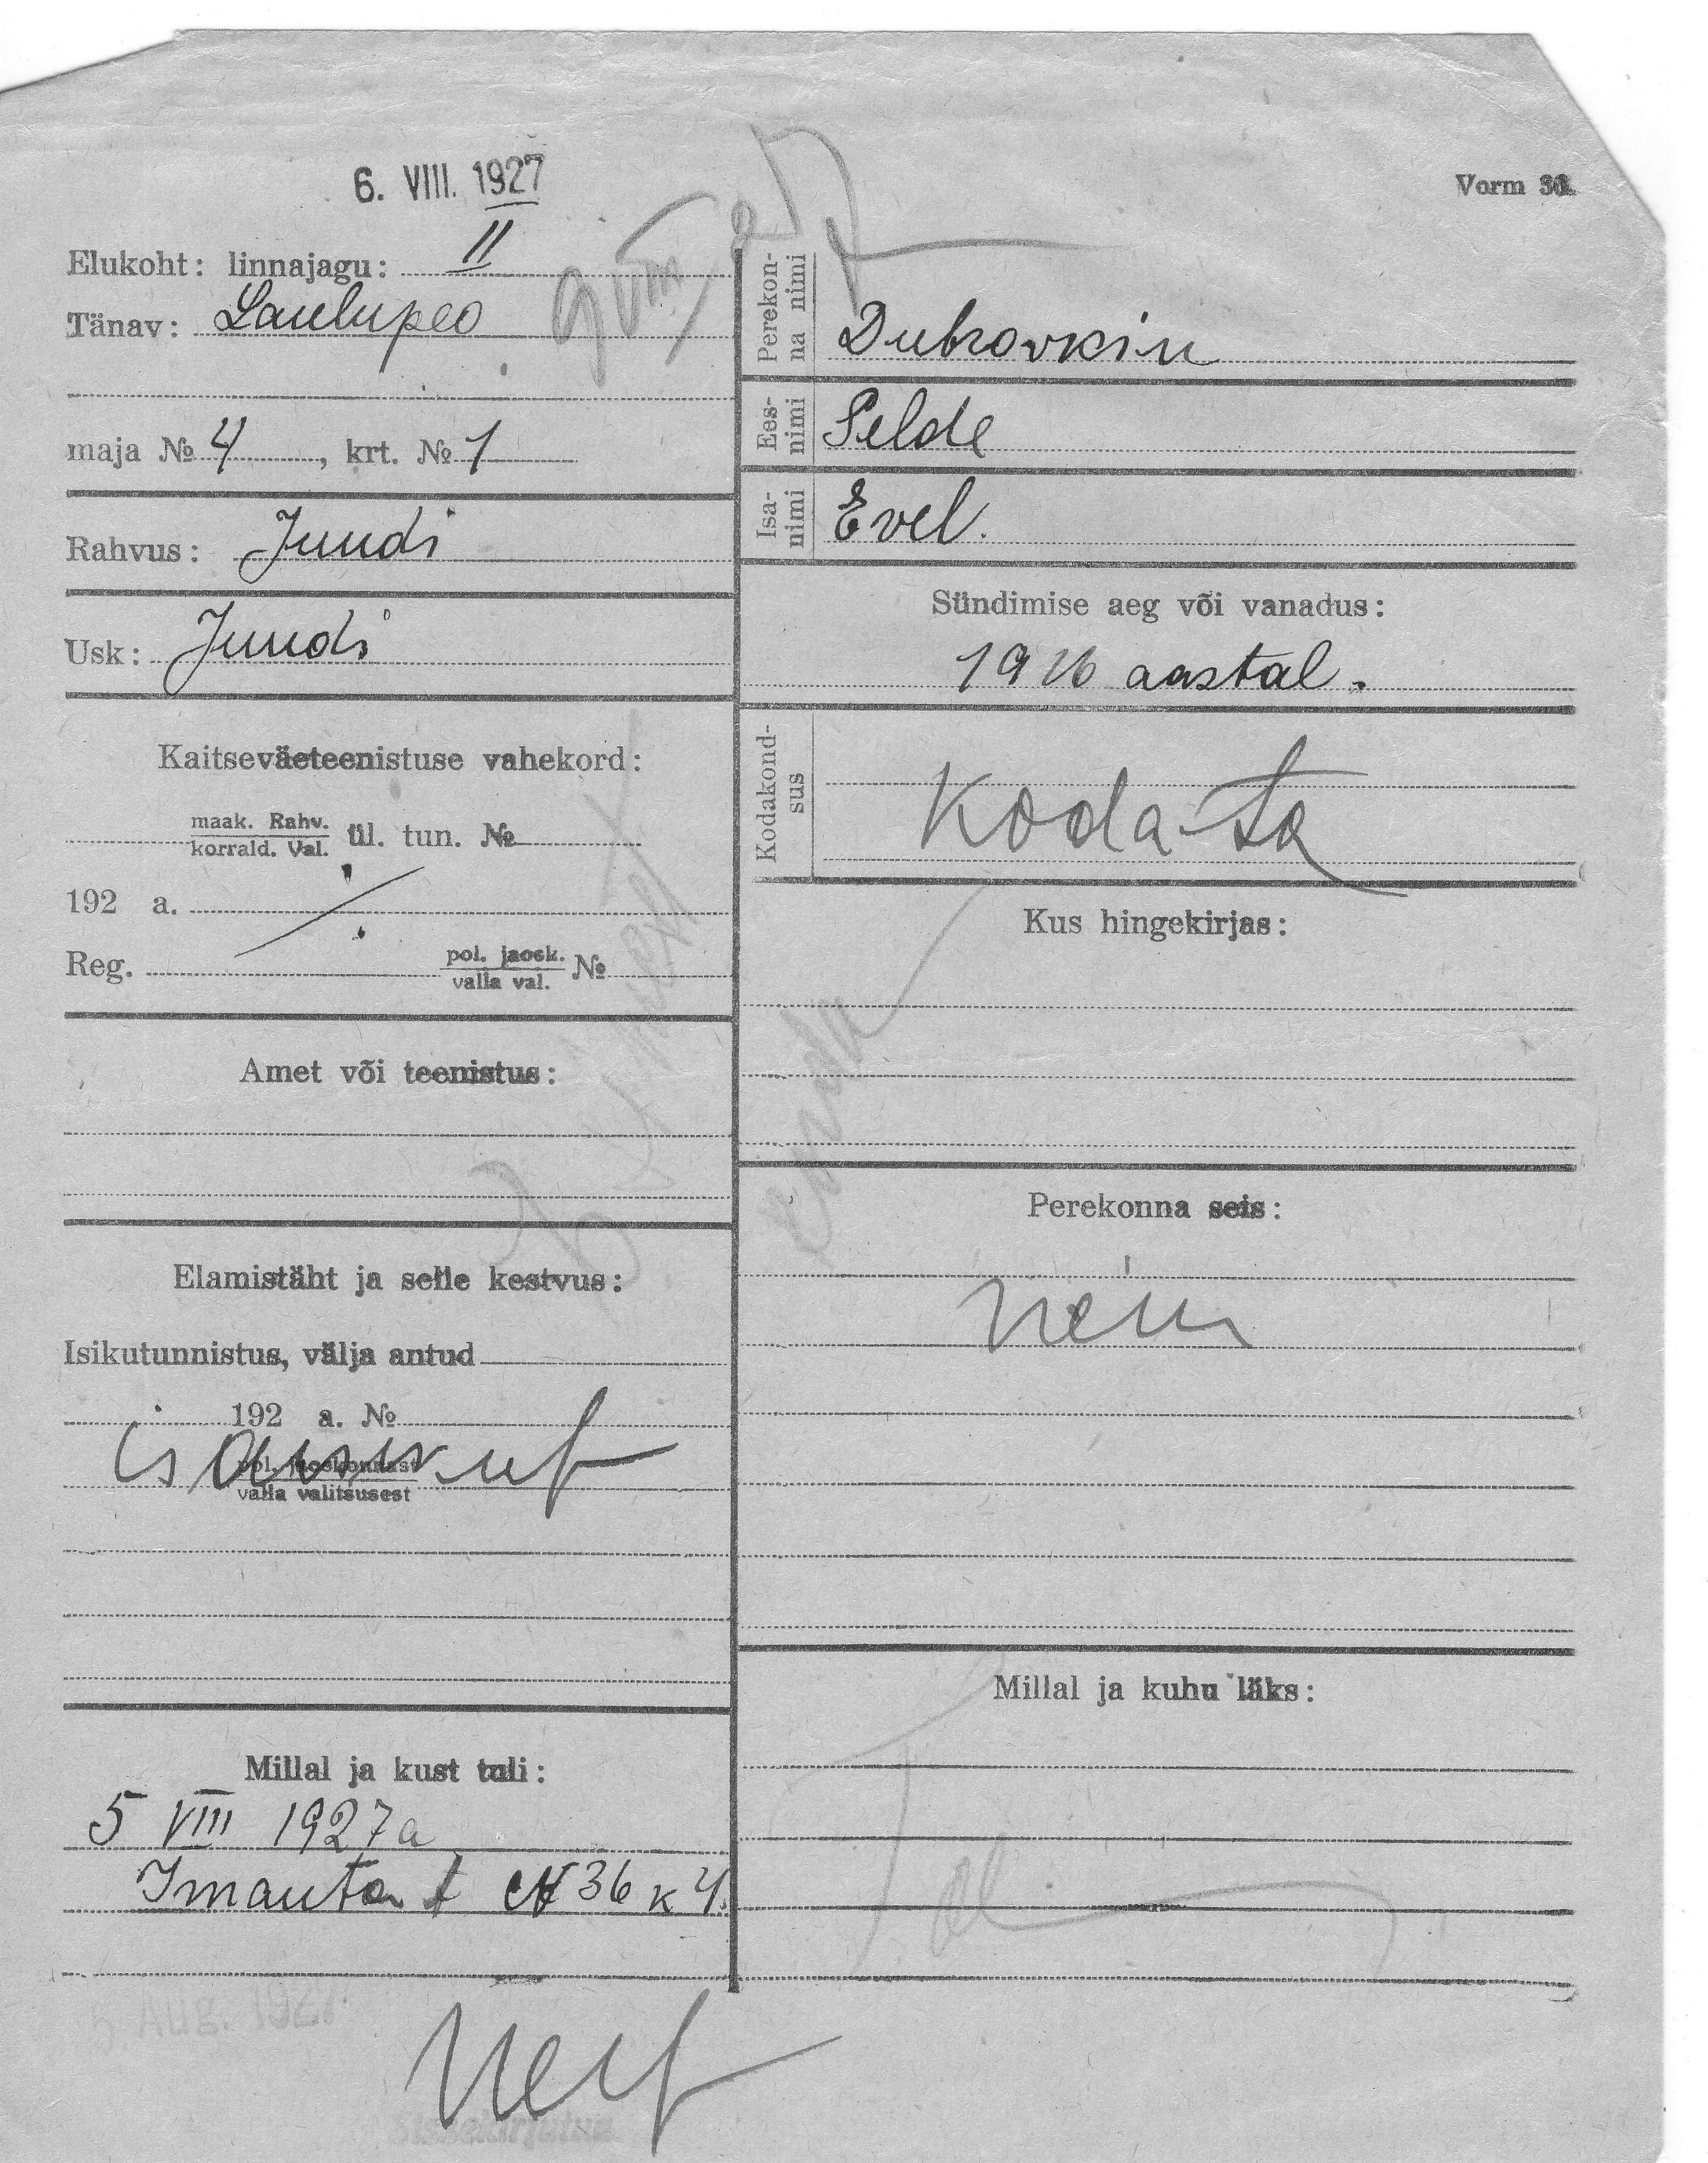 6. VIII. 1927
Vorm
Elukoht: linnajagu: II
Tänav: Laulupeo
maja № 4, krt. № 1
Rahvus: Juudi
Usk: Juudi
Kaitseväeteenistuse vahekord:
maak. Rahv.
korrald. Val. ül. tun. №
192 a.
Reg. pol. jaosk.
valla val. №
Amet või teenistus:
Elamistäht ja selle kestvus:
Isikutunnistus, välja antud
192 a. №
pol. jaoskonnast
valla valitsusest
Millal ja kust tuli:
5 VIII 1927 a
Imanta t № 36 k 4.
5 AUG. 1927
Perekon-
na nimi
Dubrovkin
Ees-
nimi
Pelde
Isa-
nimi
Evel.
Sündimise aeg või vanadus:
1926 aastal.
Kodakond-
sus
Koda-ta
Kus hingekirjas:
Perekonna seis:
Millal ja kuhu läks:
Sissekirjutud